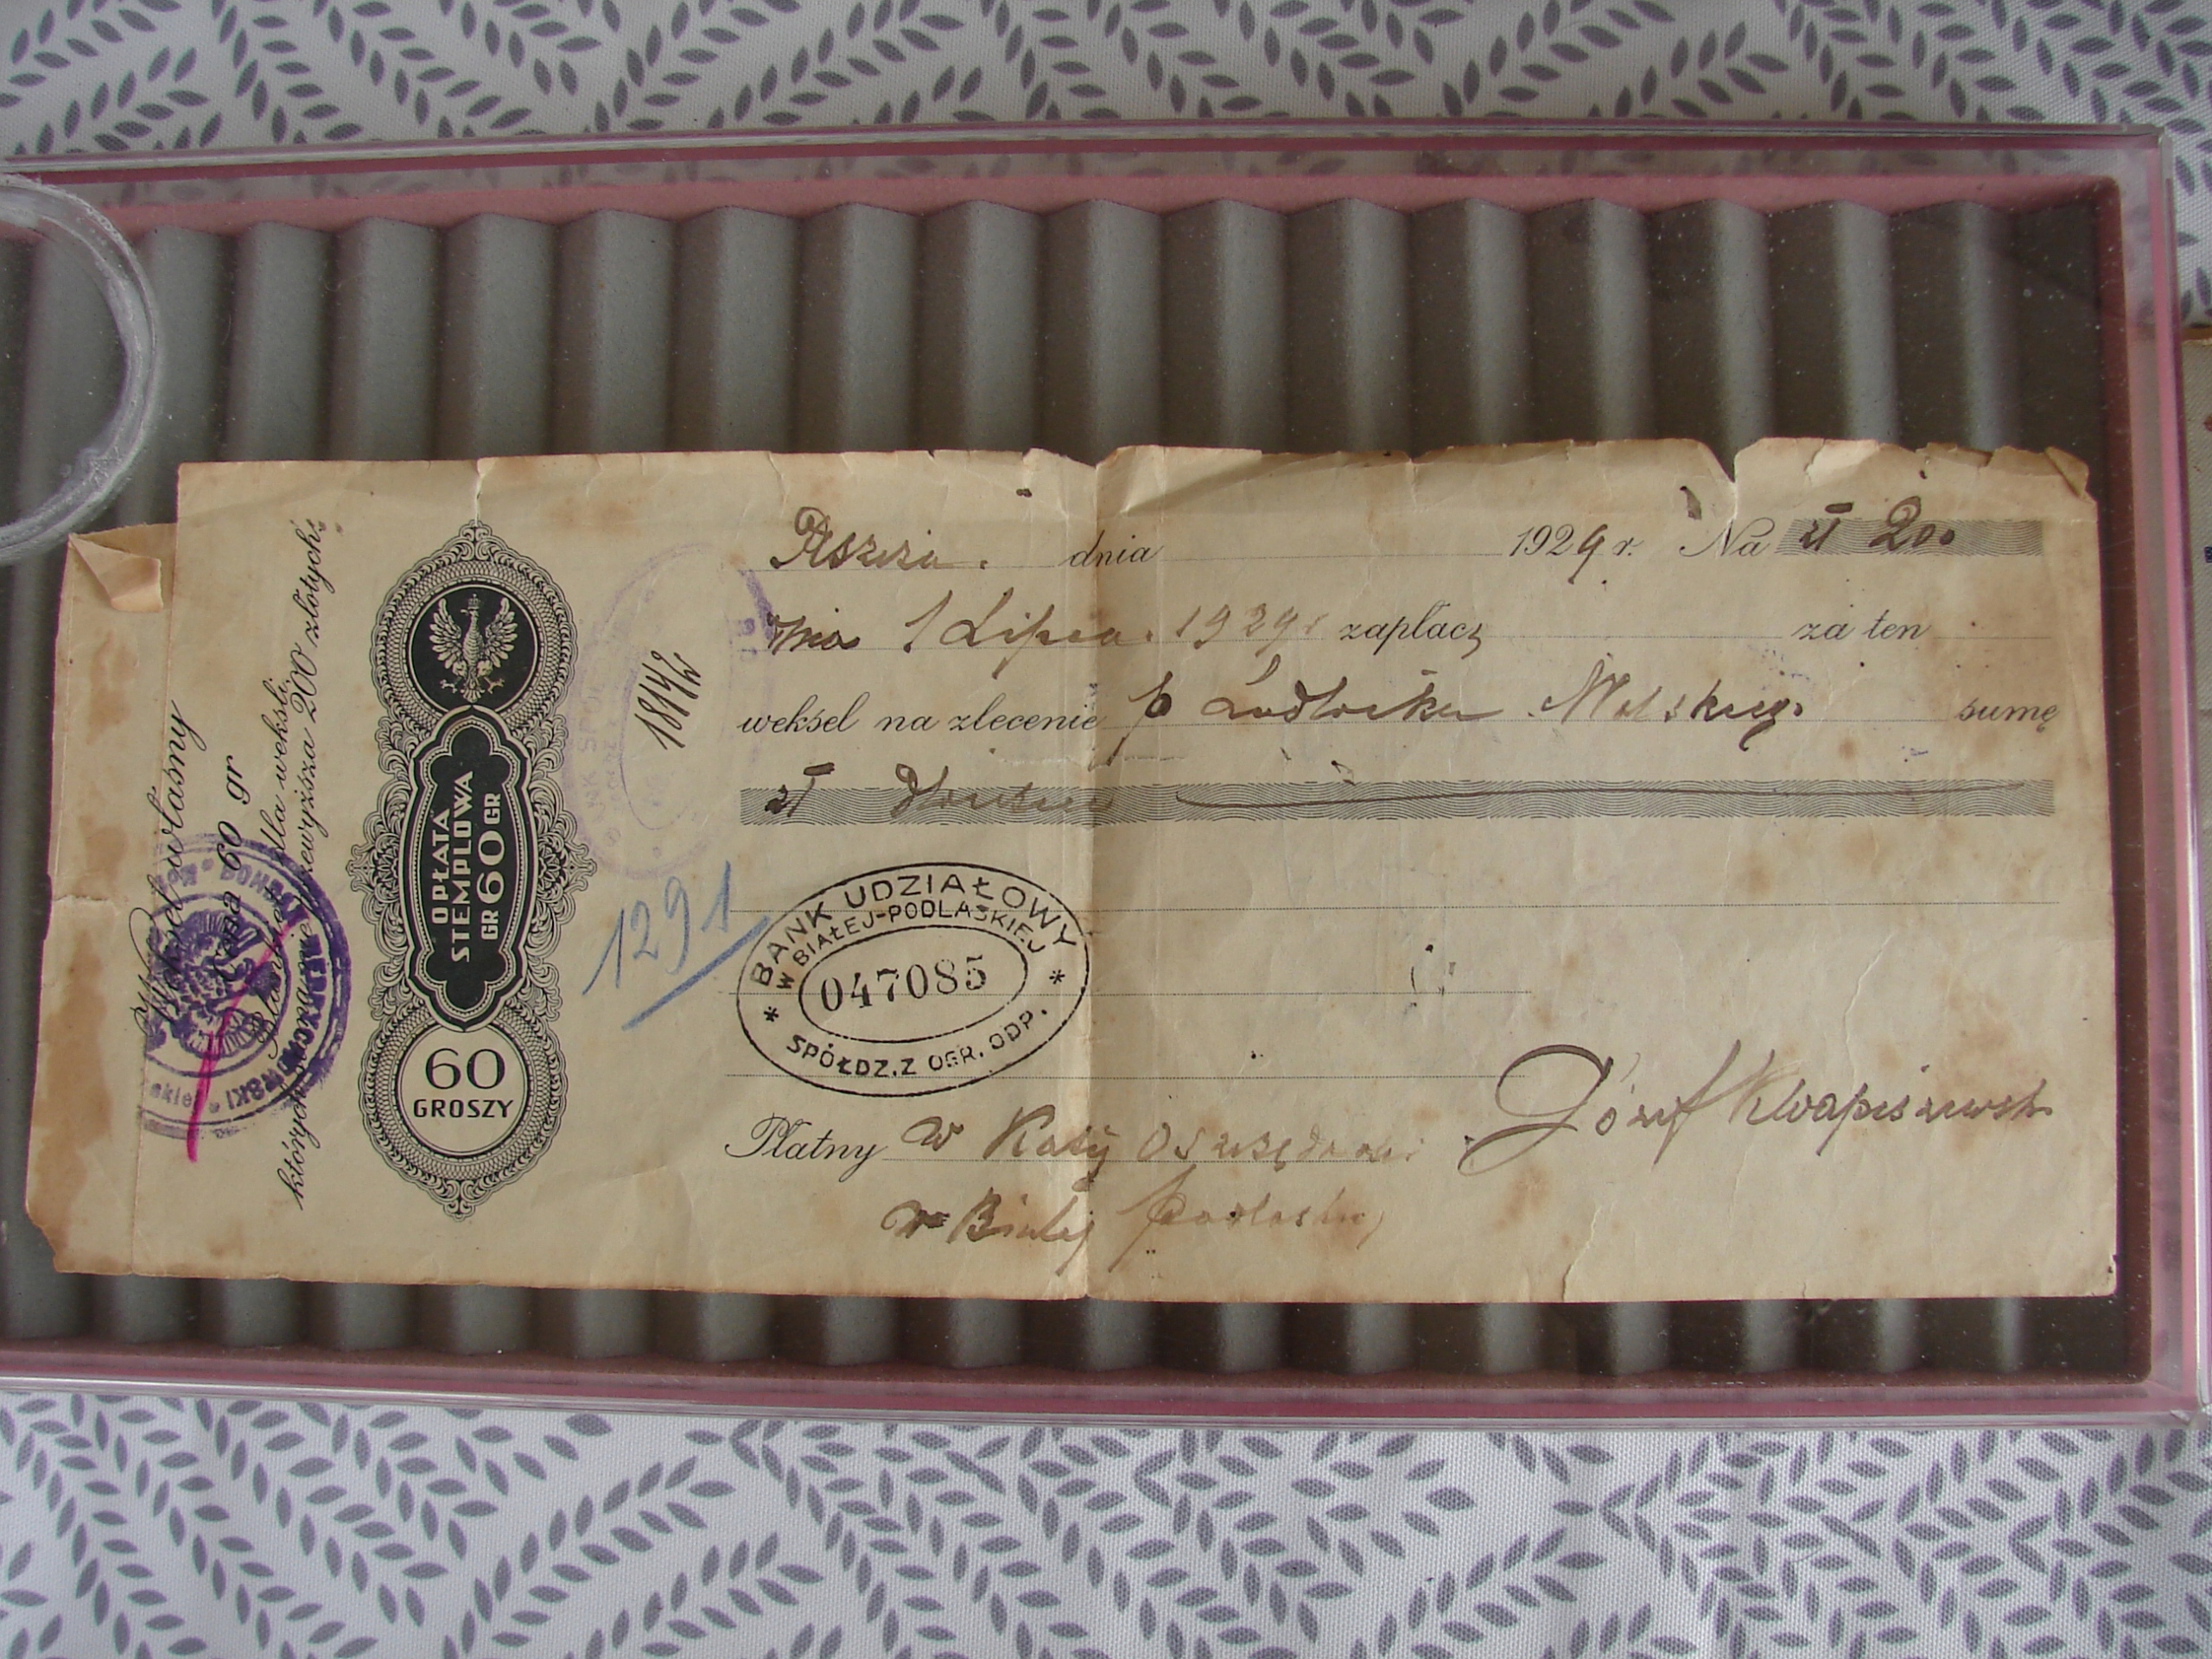 Weksel własny
Cena 60 gr
Blankiet dla weksli,
których suma nie przewyższa 200 złotych
OPŁATA
STEMPLOWA
GR 60 GR
60
GROSZY
18142
1291
dnia 1929 r. Na zł 200
dnia 1 Lipca 1929 r zapłacę za ten
weksel na zlecenie p Ludwika sumę
zł dwieście
BANK UDZIAŁOWY
W BIAŁEJ-PODLASKIEJ
047085
SPÓŁDZ. Z OGR. ODP.
Józef Kwapiszewski
Płatny w Kasy
w Białej Podlaskiej